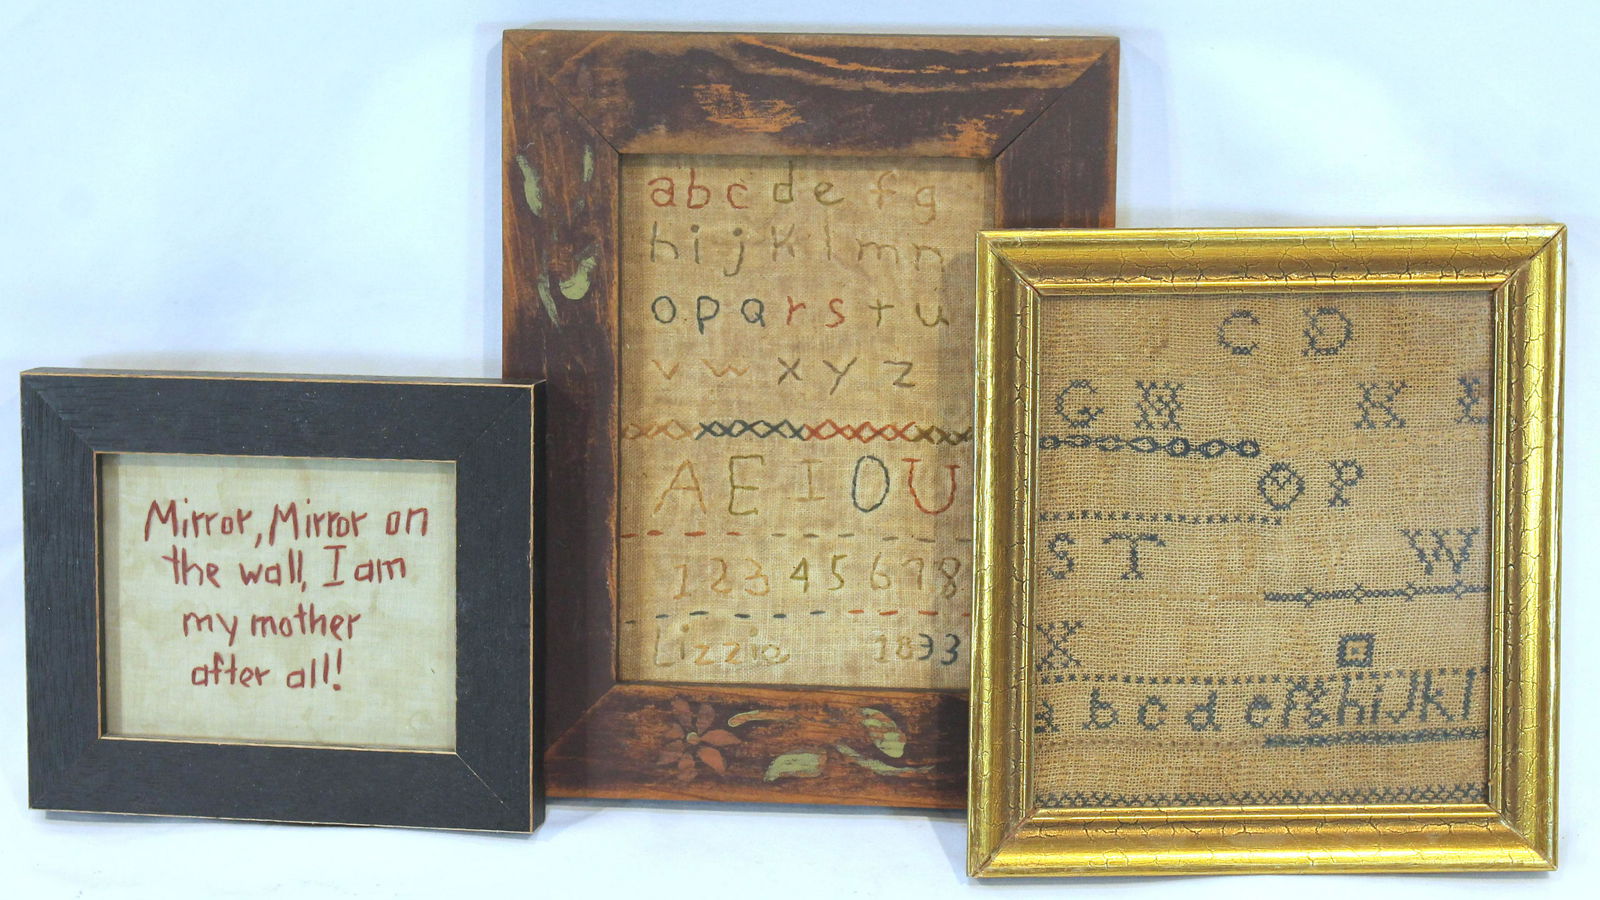 Mirror, Mirror on
the wall, I am
my mother
after all!
a b c d e f g
h i j k l m n
o p q r s t u
v w x y z
A E I O U
1 2 3 4 5 6 7 8
Lizzie 1833
C D
G H K L
O P
S T W
X
a b c d e f g h i j k l